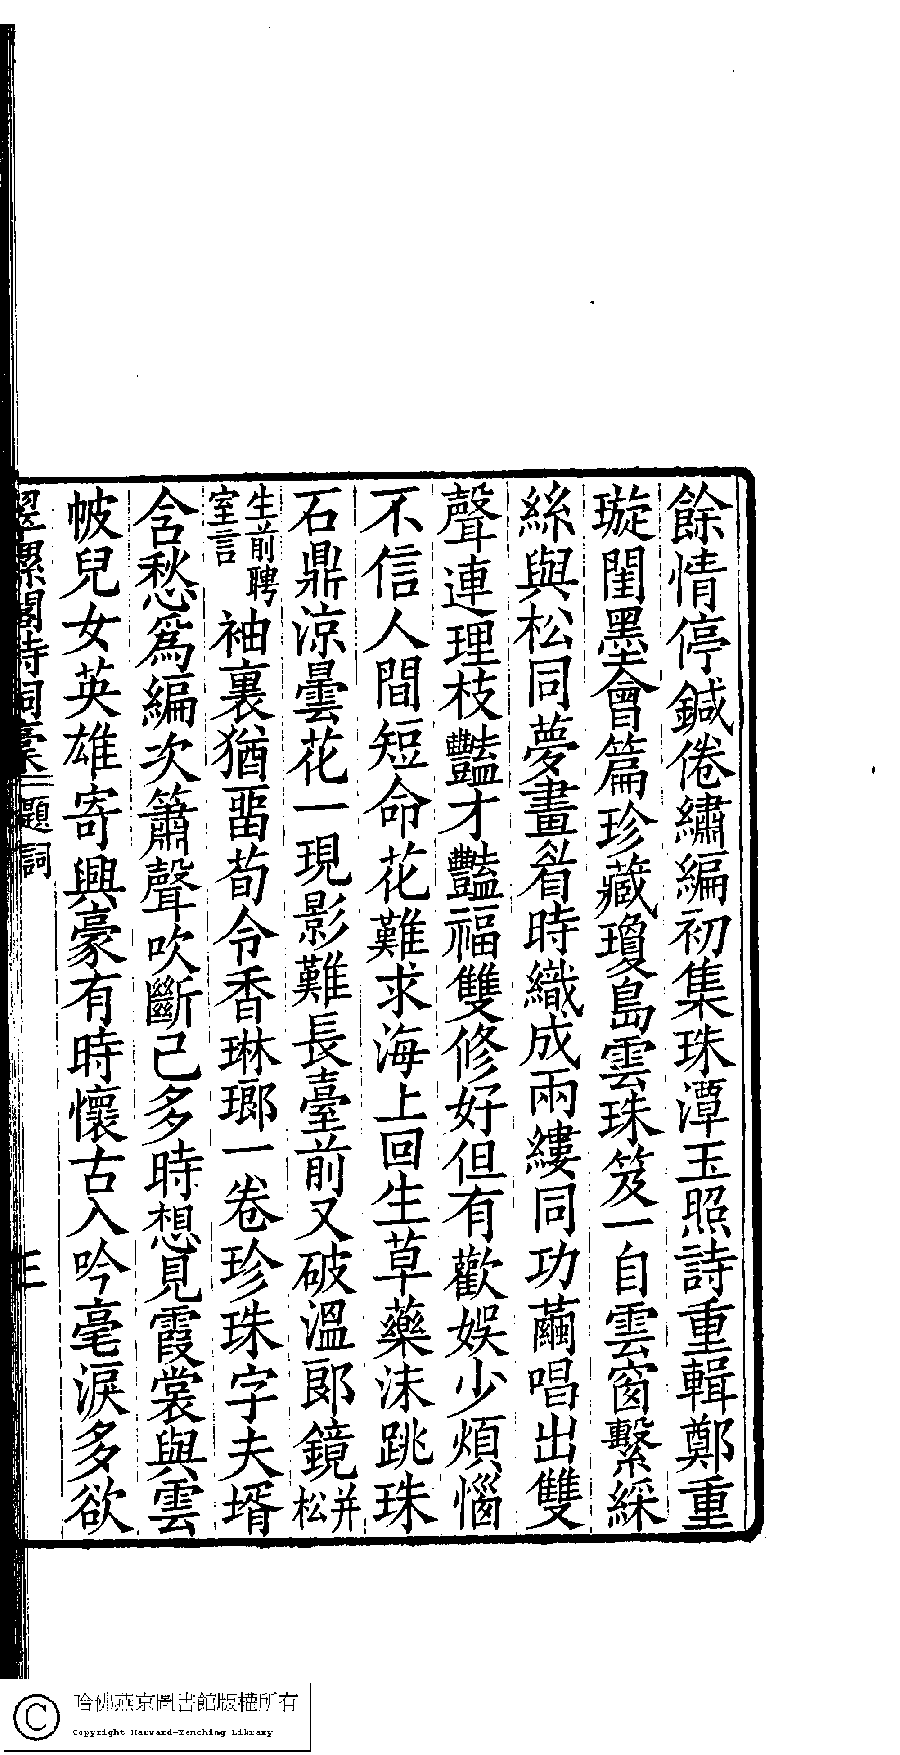 餘情停鍼倦繡編初集珠潭玉照詩重輯鄭重
璇閨墨會篇珍藏瓊島雲珠笈一自雲窗繫綵
絲與松同夢畫眉時織成兩縷同功繭唱出雙
聲連理枝豔才豔福雙修好但有歡娛少煩惱
不信人間短命花難求海上回生草藥沫跳珠
石鼎涼曇花一現影難長臺前又破溫郎鏡并松
生前聘室言袖裏猶畱荀令香琳瑯一卷珍珠字夫壻
含愁爲編次簫聲吹斷已多時想見霞裳與雲
帔兒女英雄寄興豪有時懷古入吟毫淚多欲
翠螺閣詩詞稾 題詞 三
哈佛燕京圖書館版權所有
Copyright Harvard-Yenching Library